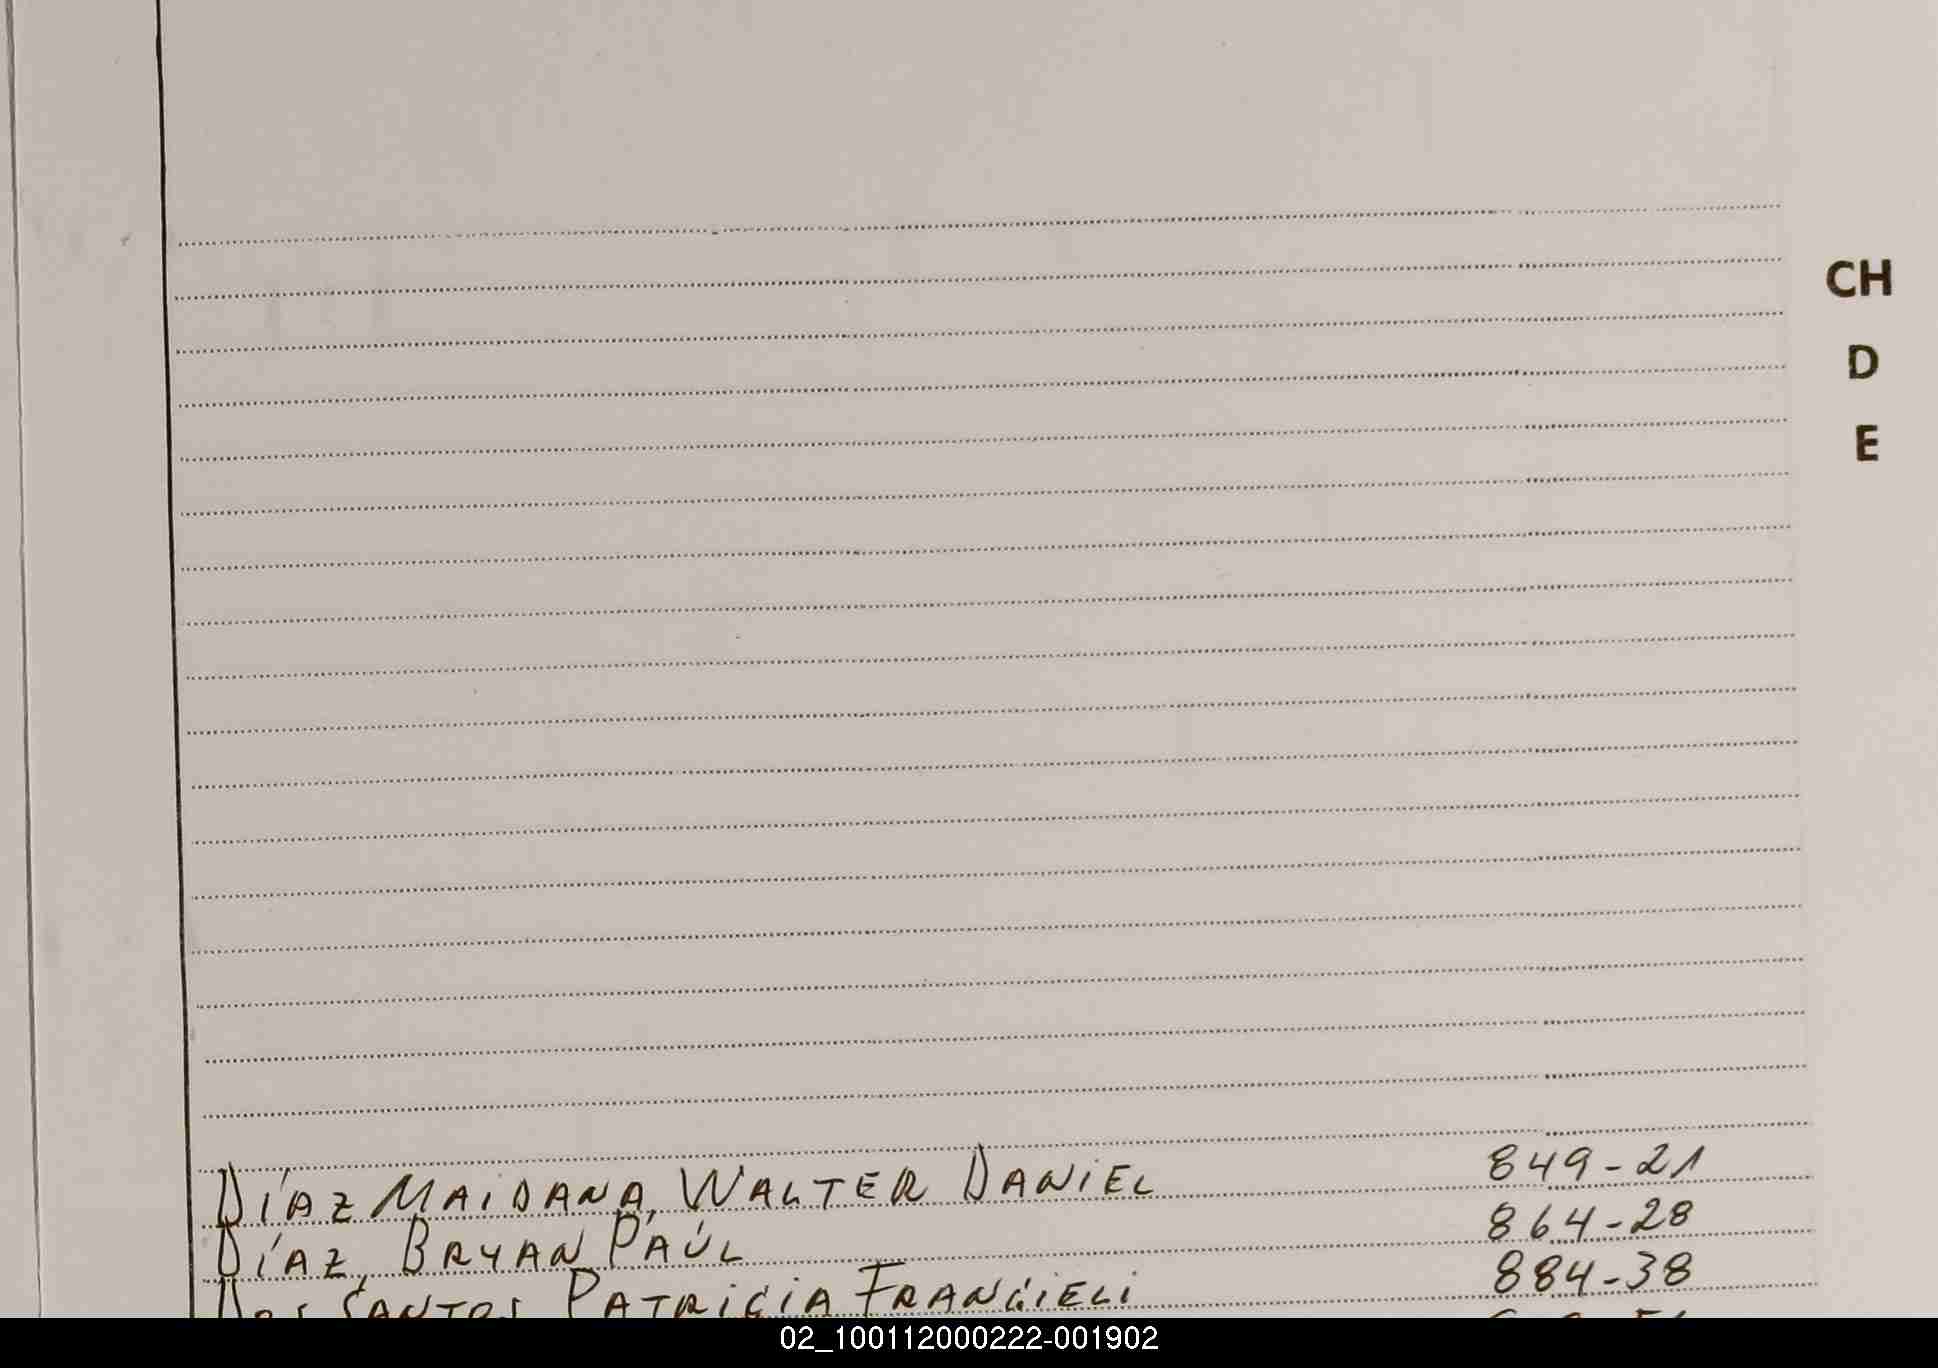 CH
D
E
DíAZ MAiDANA, WALTER DANiEL 849-21
DíAZ, BRYAN PAÚL 864-28
DOS SANTOS PATRiCiA FRANCiELi 884-38
02_100112000222-001902